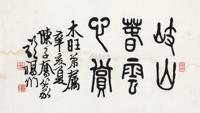 岐山
春雲
心賞
木旺弟屬
辛亥夏
陳子奮篆